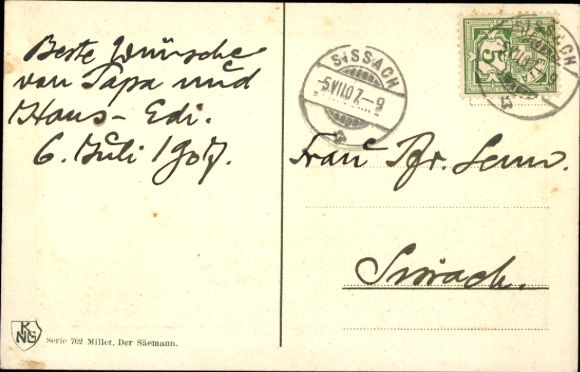 Beste Wünsche
von Papa und
Hans-Edi.
6. Juli 1907.
SISSACH
6.VII.07.-9
SISSACH
5
Frau Dr. Senn.
Sissach.
KNG
Serie 702 Millet, Der Säemann.